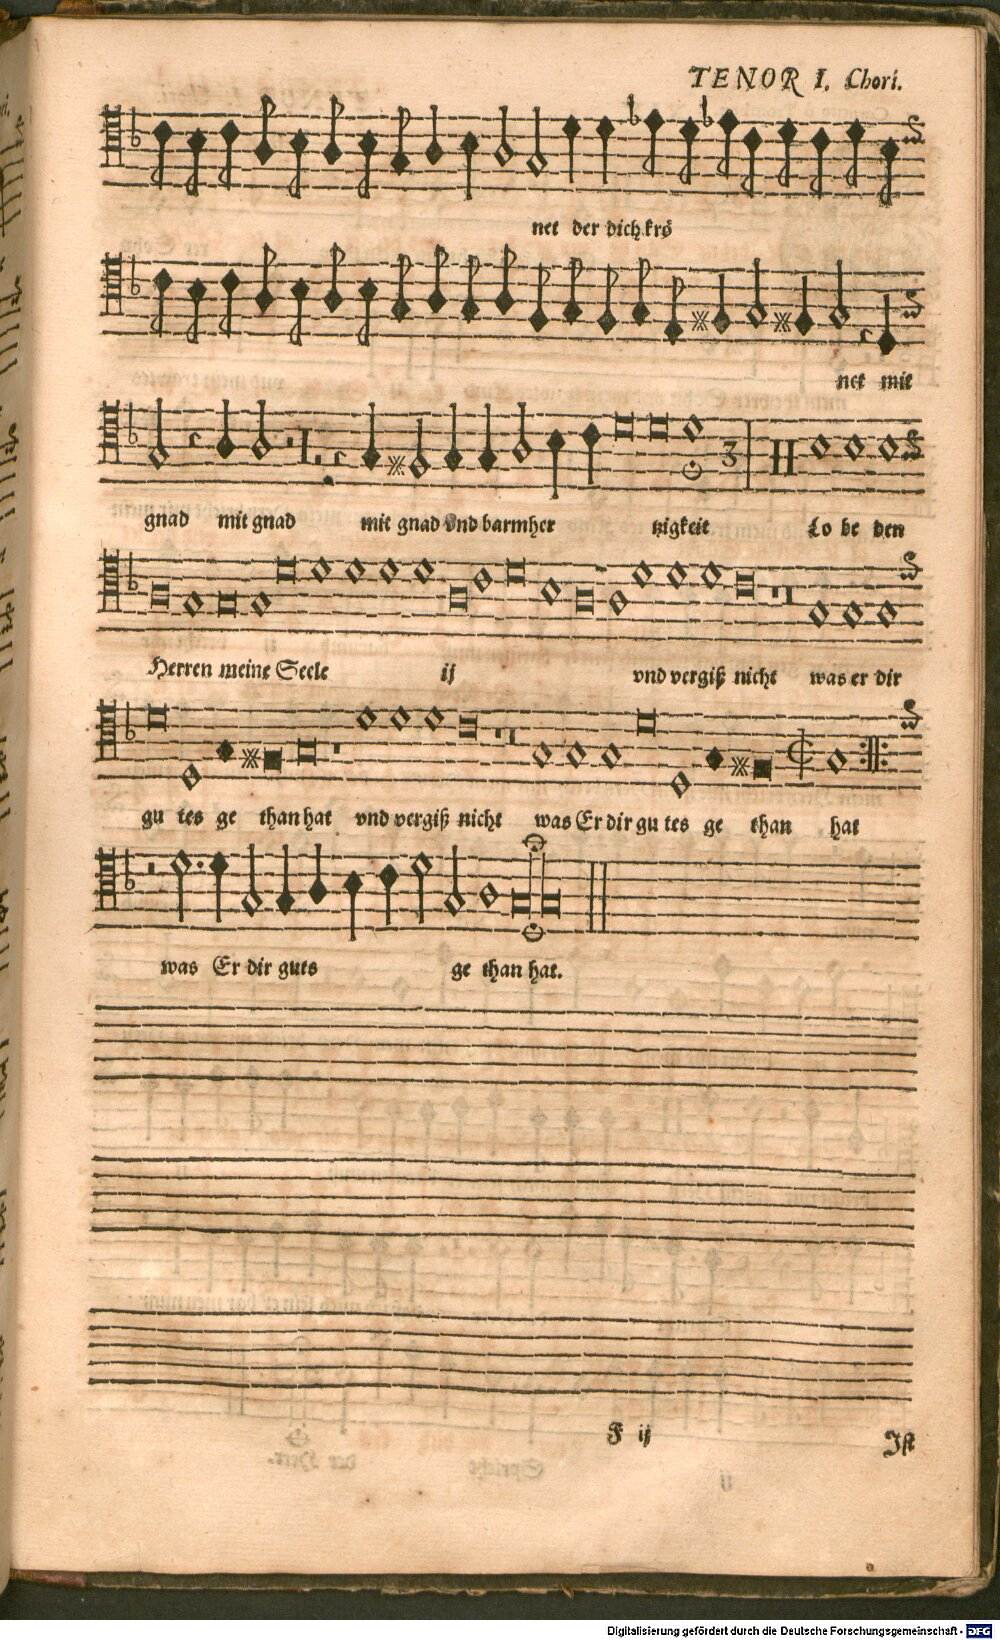 TENOR I. Chori.
net der dich krö
net mit
gnad mit gnad mit gnad vnd barmher tzigkeit Lo be den
Herren meine Seele ij vnd vergiß nicht was er dir
gu tes ge than hat vnd vergiß nicht was Er dir gu tes ge than hat
was Er dir guts ge than hat.
F ij Ist
Digitalisierung gefördert durch die Deutsche Forschungsgemeinschaft - DFG